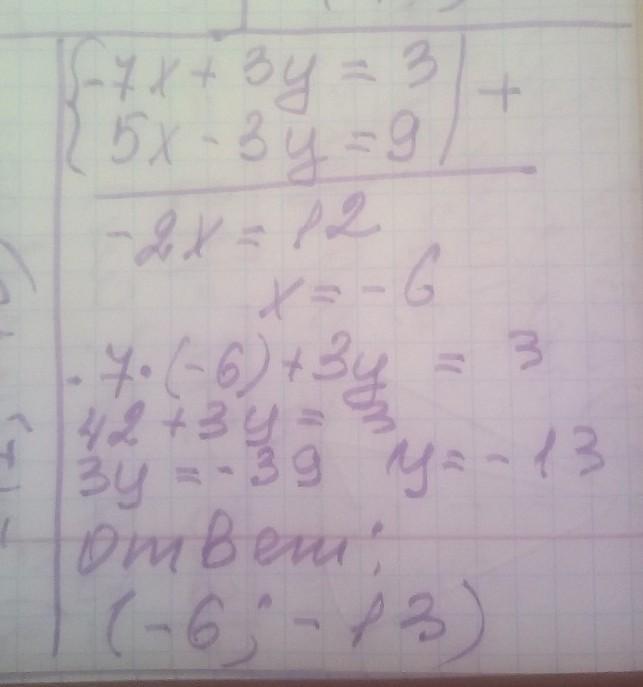 {-7x + 3y = 3 | +
5x - 3y = 9
-2x = 12
x = -6
-7·(-6) + 3y = 3
42 + 3y = 3
3y = -39 y = -13
ответ:
(-6; -13)